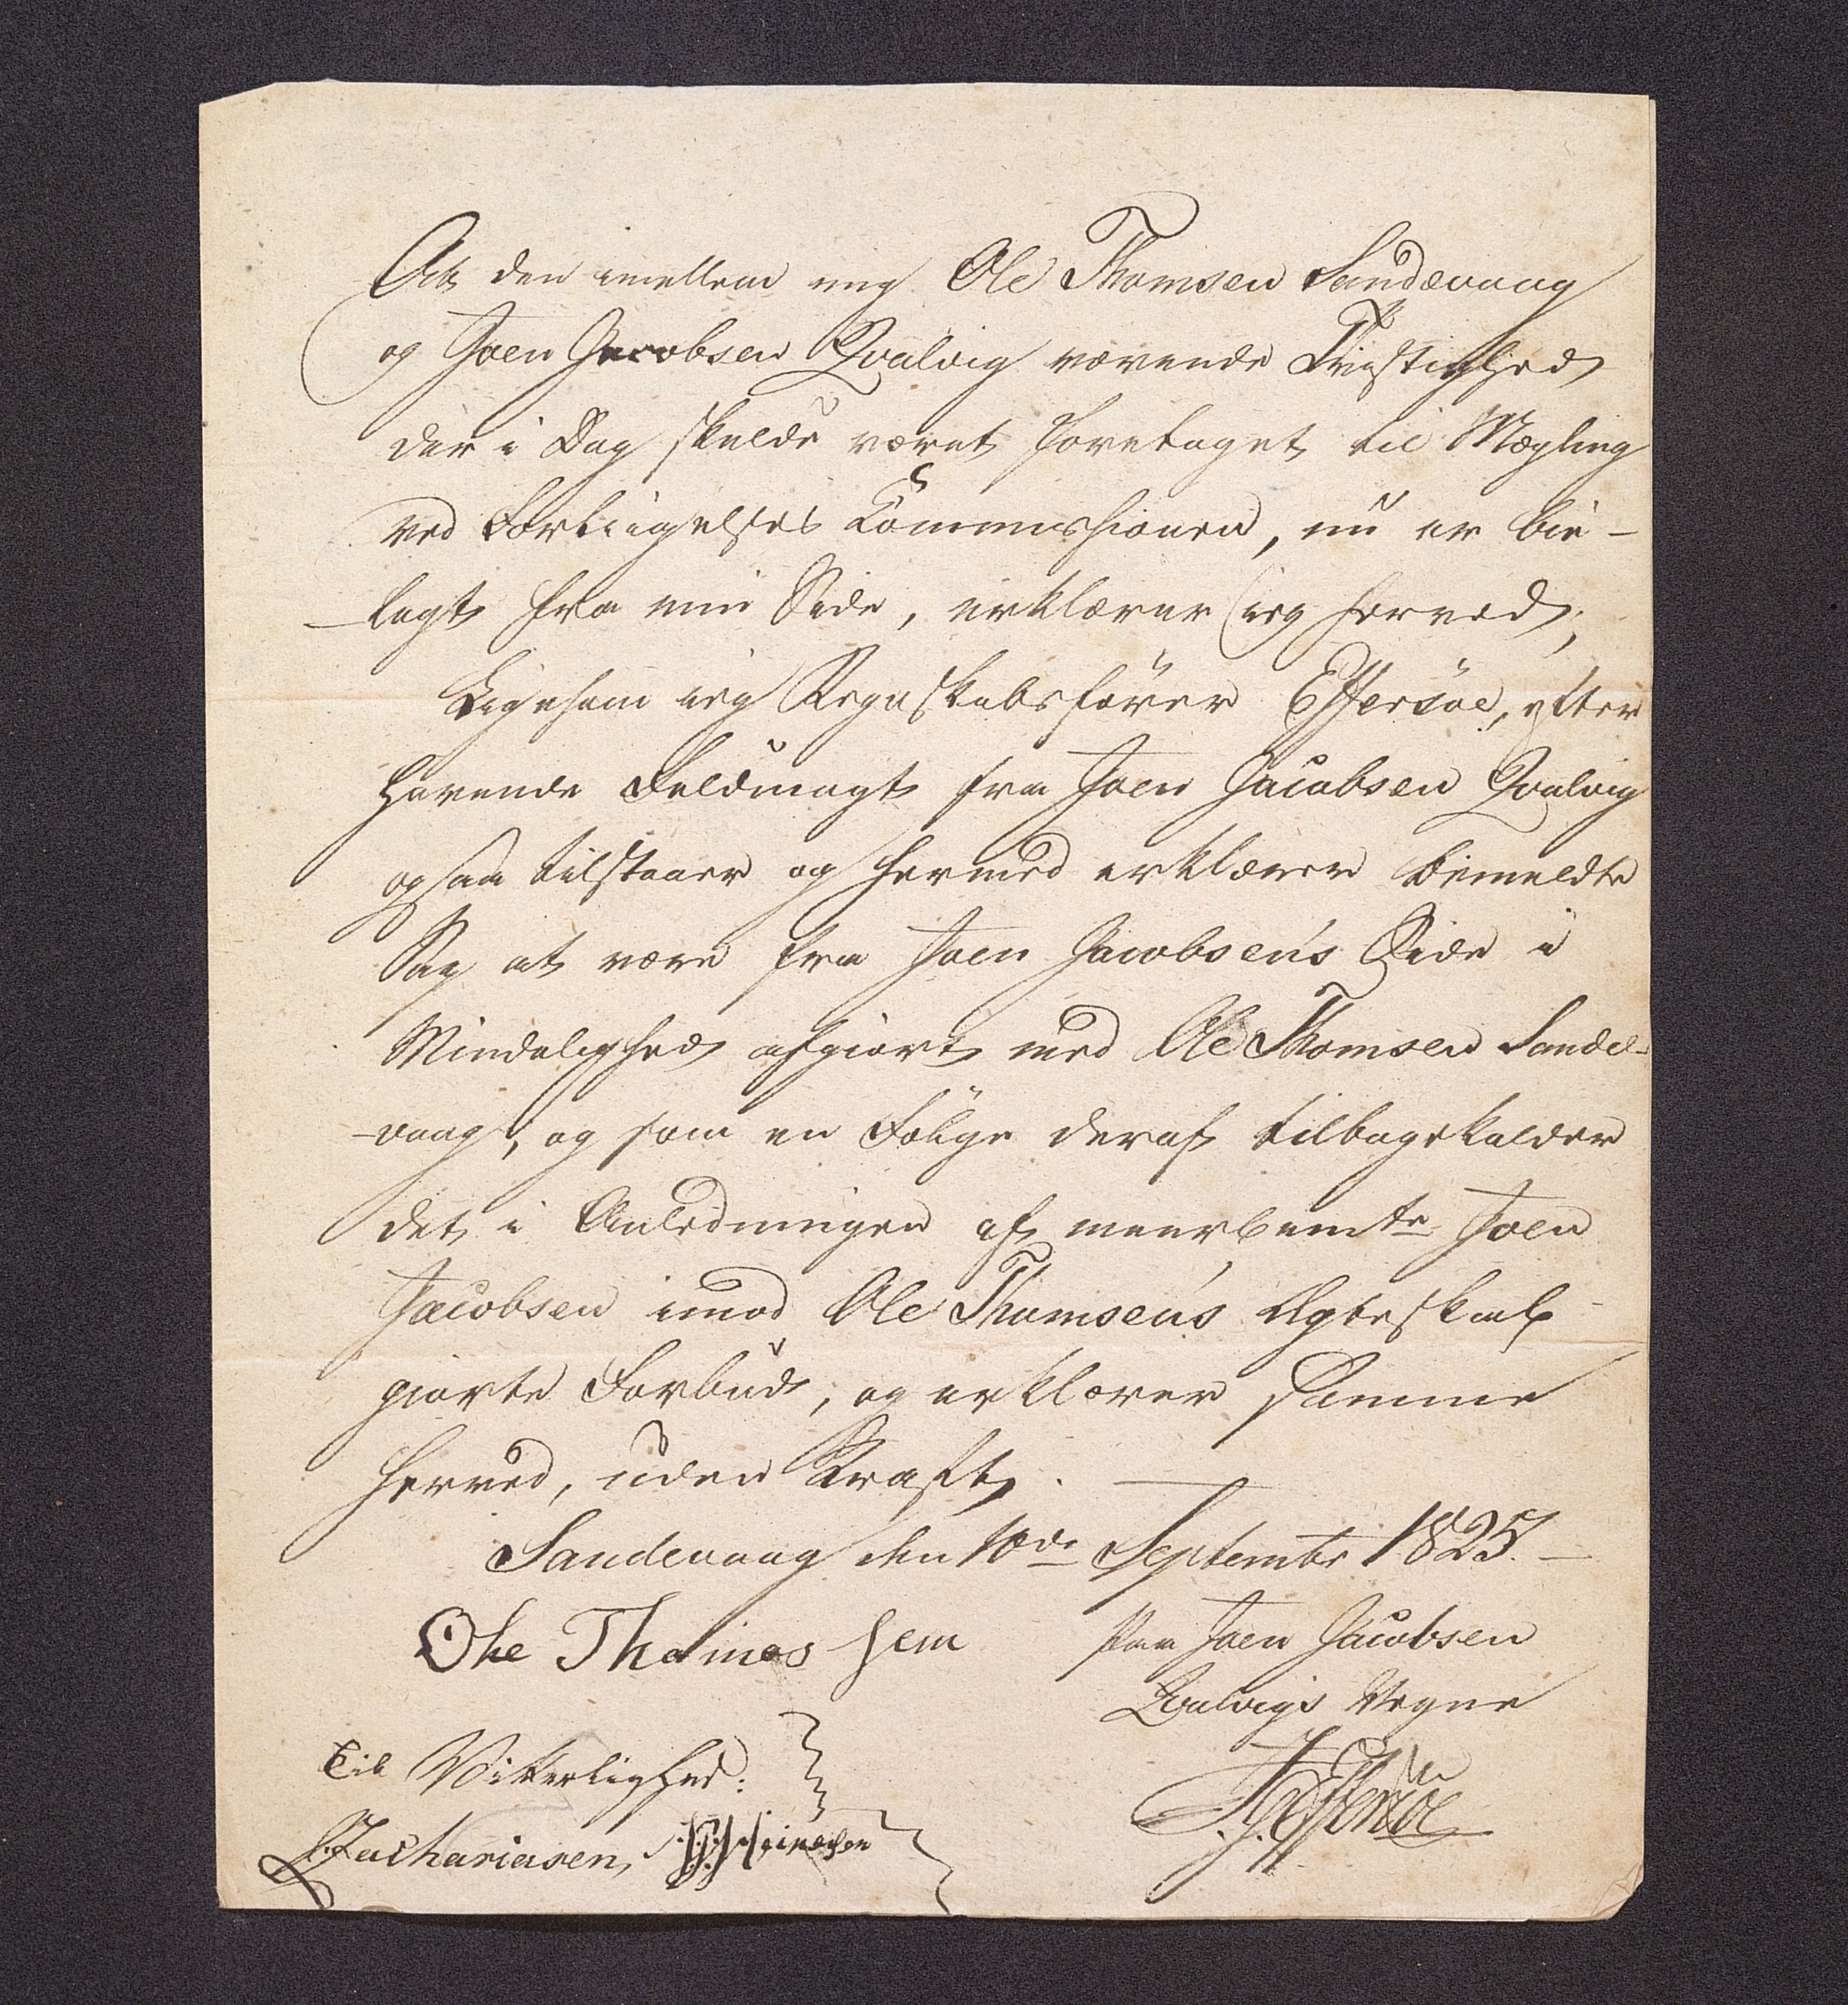 At den imellem mig Ole Thomsen Sandevaag
og Joen Jacobsen Qvalvig værende Tvistighed
der i Dag skulde været foretaget til Mægling
ved Forliigelses Commissionen, nu er bie-
-lagt fra min Side, erklærer ieg herved;
Ligesom ieg Regnskabsfører Effersöe, efter
havende Fuldmagt fra Joen Jacobsen Qvalvig
ogsaa tilstaaer og hermed erklærer bemeldte
Sag at være fra Joen Jacobsen's Side i
Mindelighed afgiort med Ole Thomsen Sande-
-vaag, og som en Fölge deraf tilbagekalder
det i Anledningen af meerbemte Joen
Jacobsen imod Ole Thomsen's Ægteskab
giorte Forbud, og erklærer samme
herved, uden Kraft.
Sandevaag den 10de Septembr 1825.
Ohe Thomas sem
Paa Joen Jacobsen
Qvalvigs Vegne
Effersöe
Til Vitterlighed:
Zachariasen, Heinesen